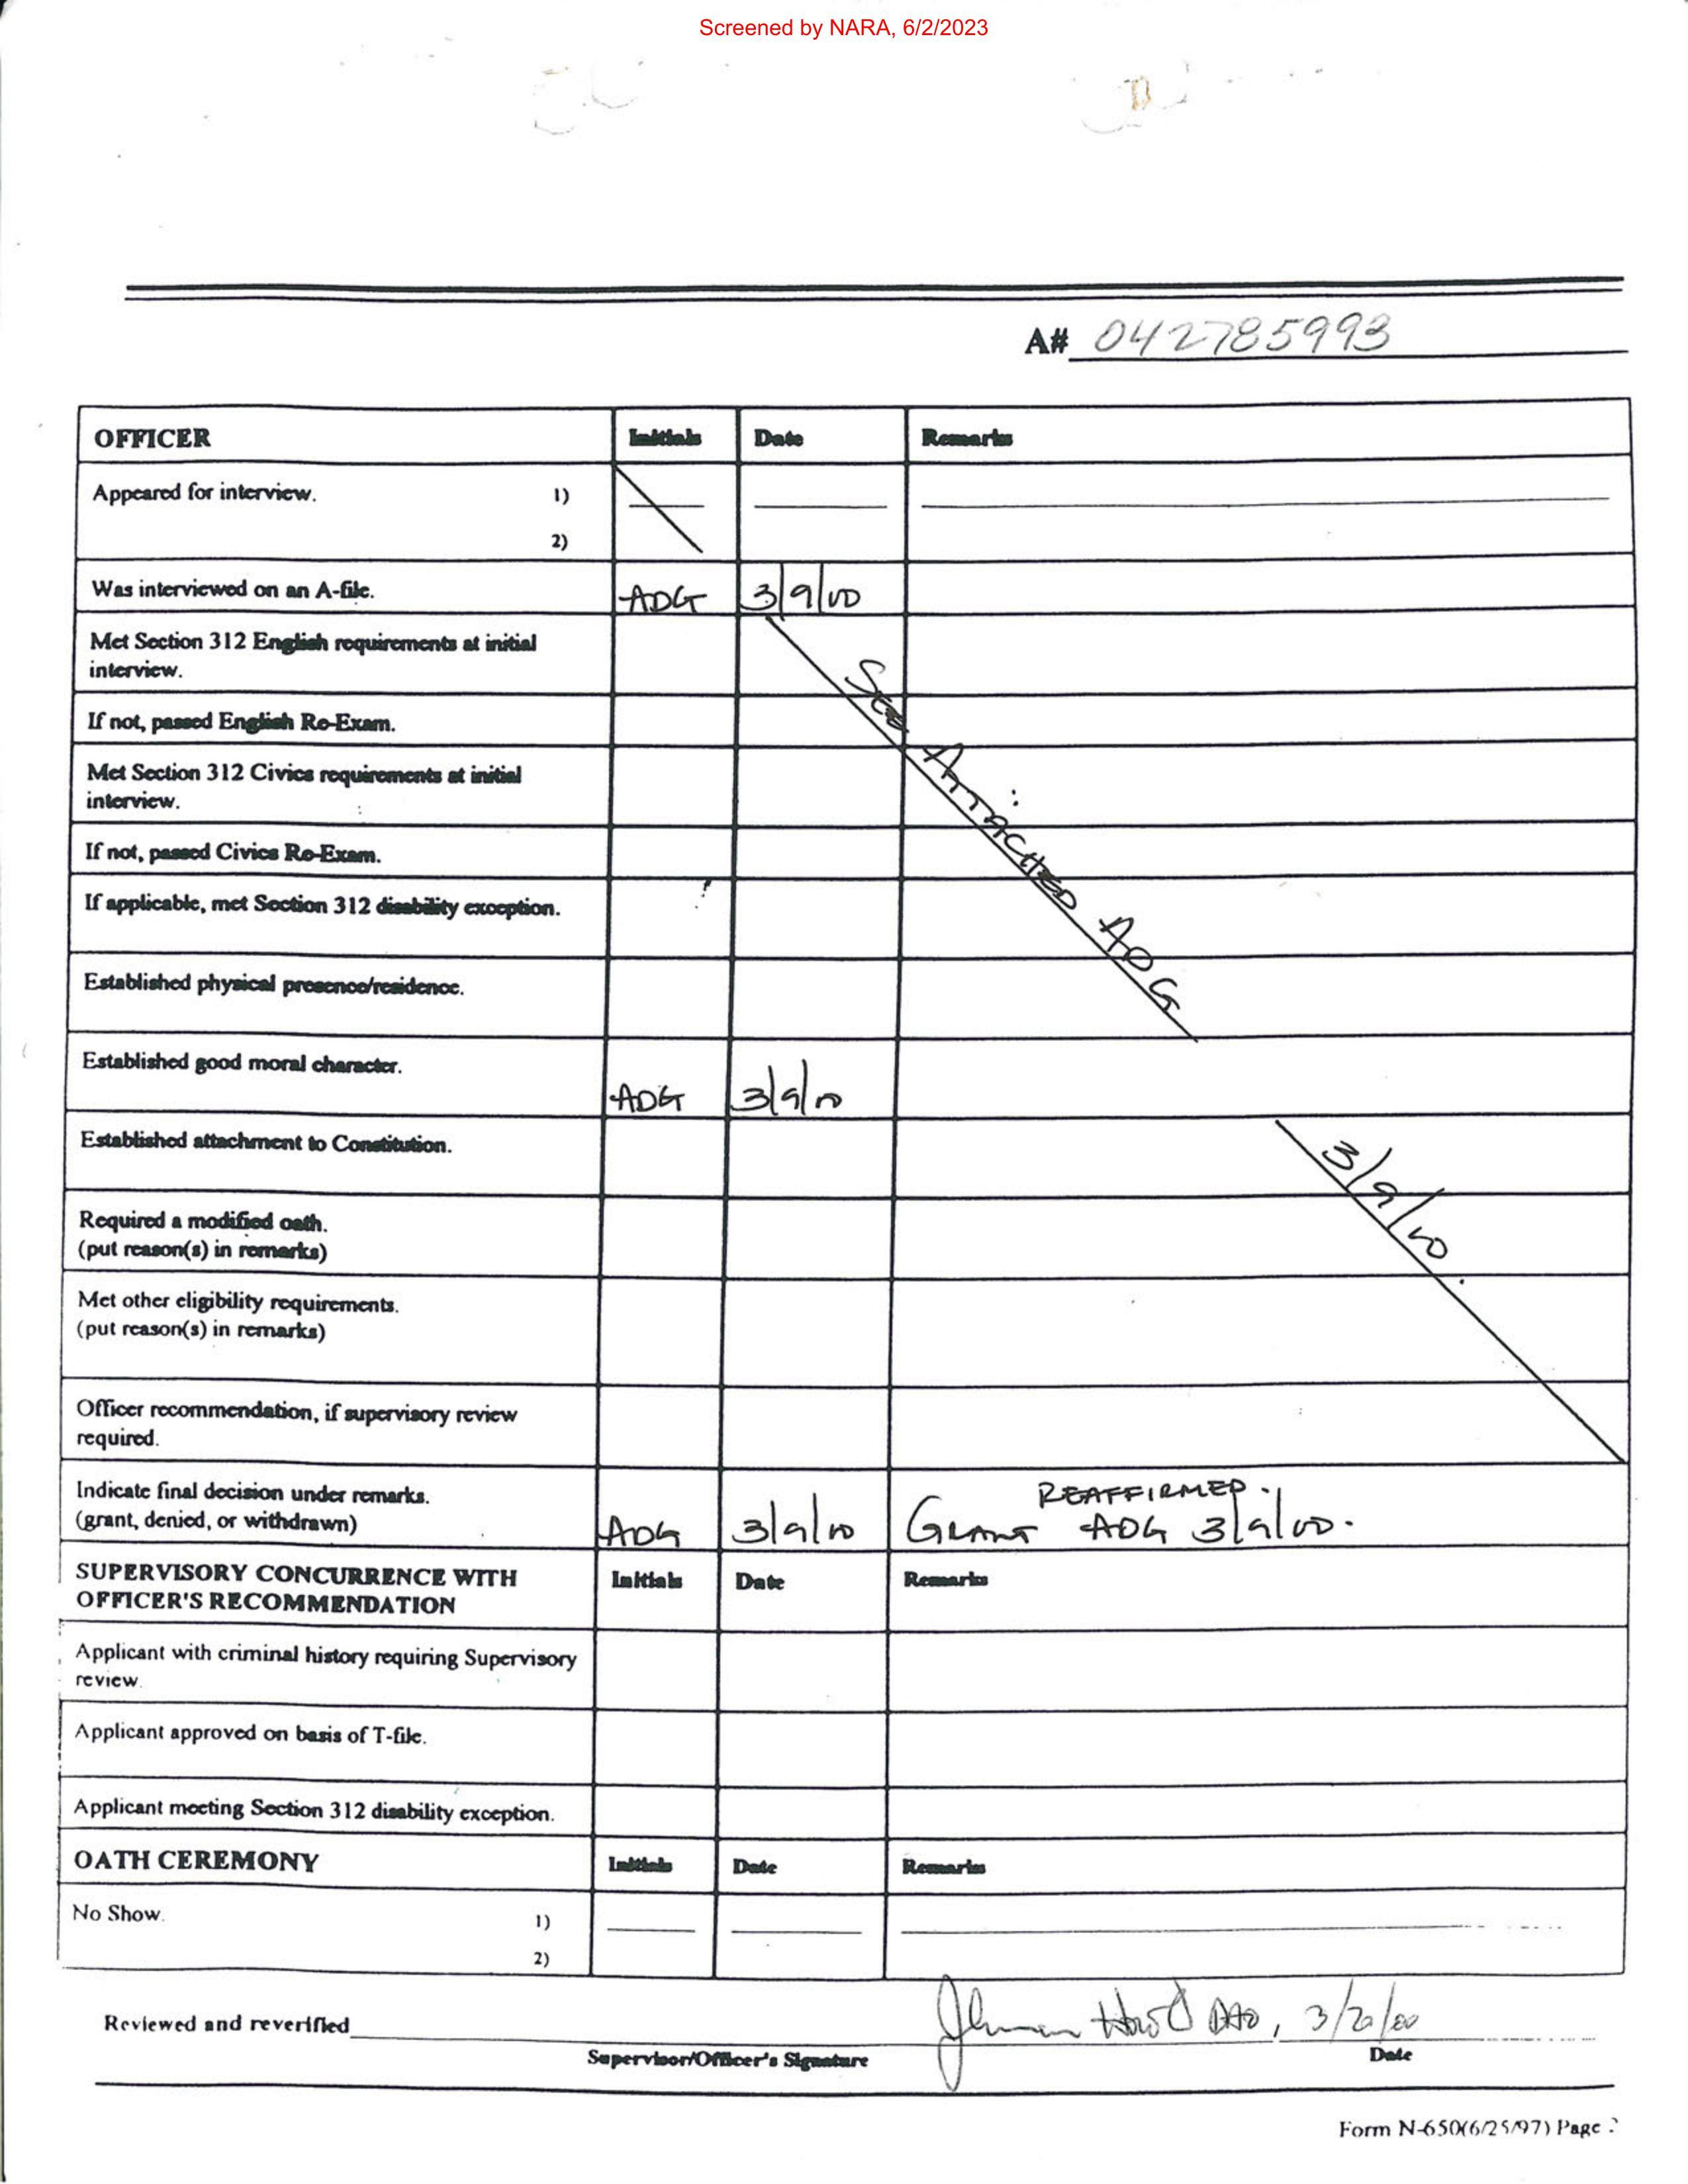 Screened by NARA, 6/2/2023
A# 042785993
OFFICER Initials Date Remarks
Appeared for interview. 1)
2)
Was interviewed on an A-file. ADG 3/9/00
Met Section 312 English requirements at initial
interview.
If not, passed English Re-Exam.
Met Section 312 Civics requirements at initial
interview.
If not, passed Civics Re-Exam.
If applicable, met Section 312 disability exception.
See Attached ADG
Established physical presence/residence.
Established good moral character.
ADG 3/9/00
Established attachment to Constitution.
3/9/00
Required a modified oath.
(put reason(s) in remarks)
Met other eligibility requirements.
(put reason(s) in remarks)
Officer recommendation, if supervisory review
required.
Indicate final decision under remarks. REAFFIRMED.
(grant, denied, or withdrawn) ADG 3/9/00 GRANT ADG 3/9/00.
SUPERVISORY CONCURRENCE WITH Initials Date Remarks
OFFICER'S RECOMMENDATION
Applicant with criminal history requiring Supervisory
review.
Applicant approved on basis of T-file.
Applicant meeting Section 312 disability exception.
OATH CEREMONY Initials Date Remarks
No Show. 1)
2)
Reviewed and reverified DAO,
Supervisor/Officer's Signature Date
Form N-650(6/25/97) Page